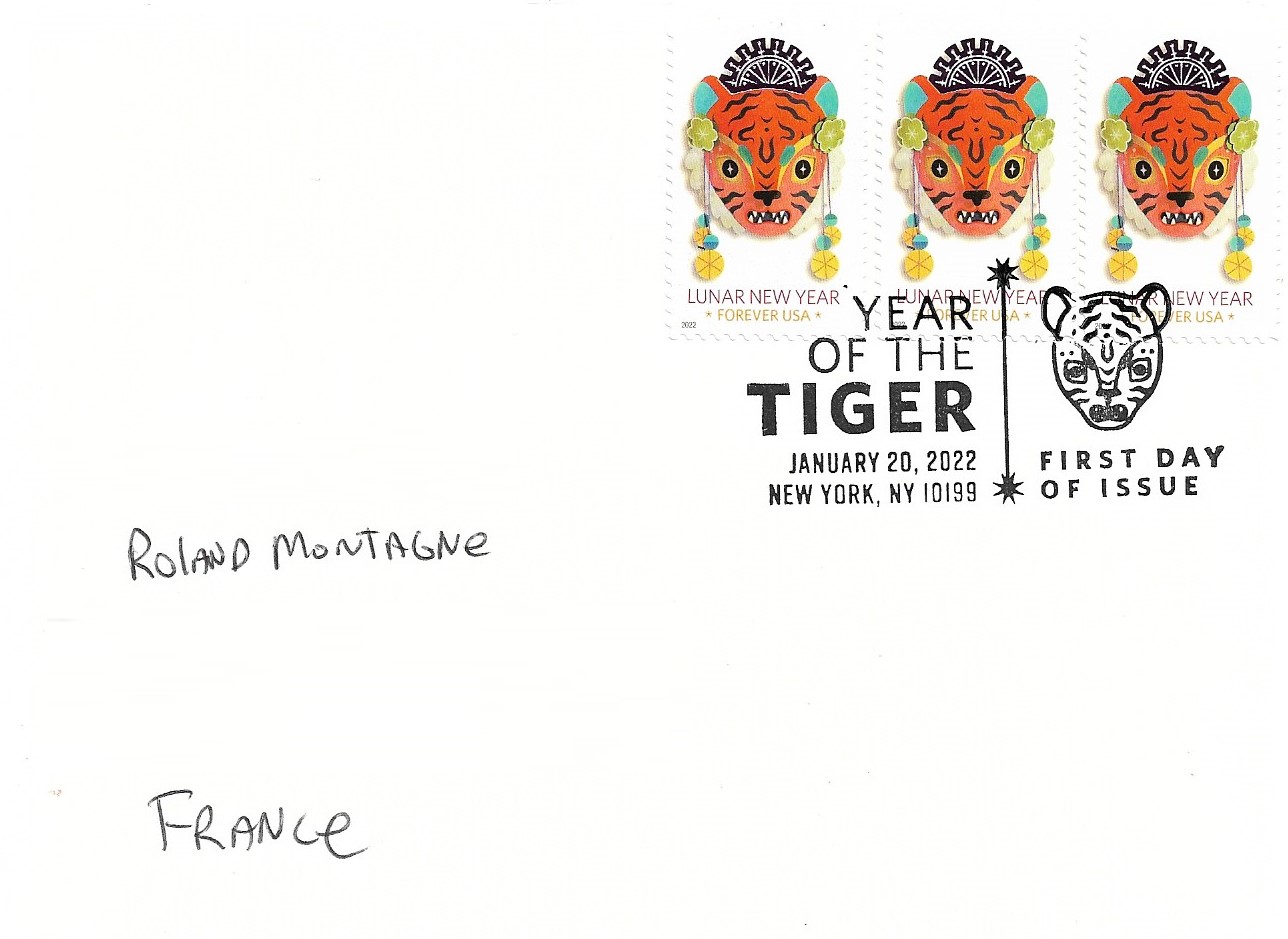 LUNAR NEW YEAR
* FOREVER USA *
2022
LUNAR NEW YEAR
* FOREVER USA *
2022
LUNAR NEW YEAR
* FOREVER USA *
2022
YEAR
OF THE
TIGER
JANUARY 20, 2022
NEW YORK, NY 10199
FIRST DAY
OF ISSUE
ROLAND MONTAGNe
FRANCe